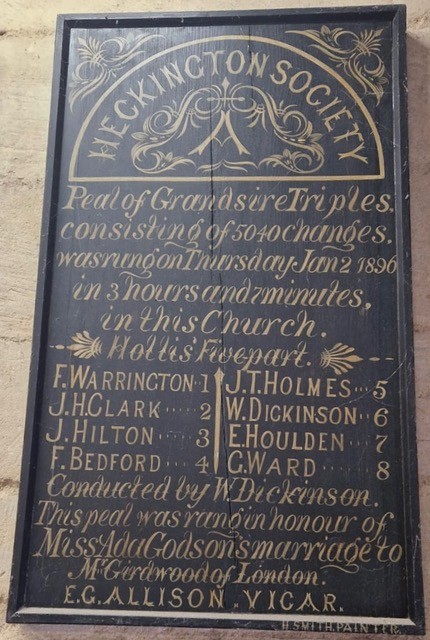 HECKINGTON SOCIETY
Peal of Grandsire Triples.
consisting of 5040 changes.
was rung on Thursday Jan 2 1896
in 3 hours and 7 minutes,
in this Church.
Hollis' Five part.
F. WARRINGTON 1 J.T. HOLMES 5
J.H. CLARK 2 W. DICKINSON 6
J. HILTON 3 E. HOULDEN 7
F. BEDFORD 4 G. WARD 8
Conducted by W Dickinson.
This peal was rang in honour of
Miss Ada Godson's marriage to
Mr Girdwood of London.
E.G. ALLISON. VICAR.
H. SMITH. PAINTER